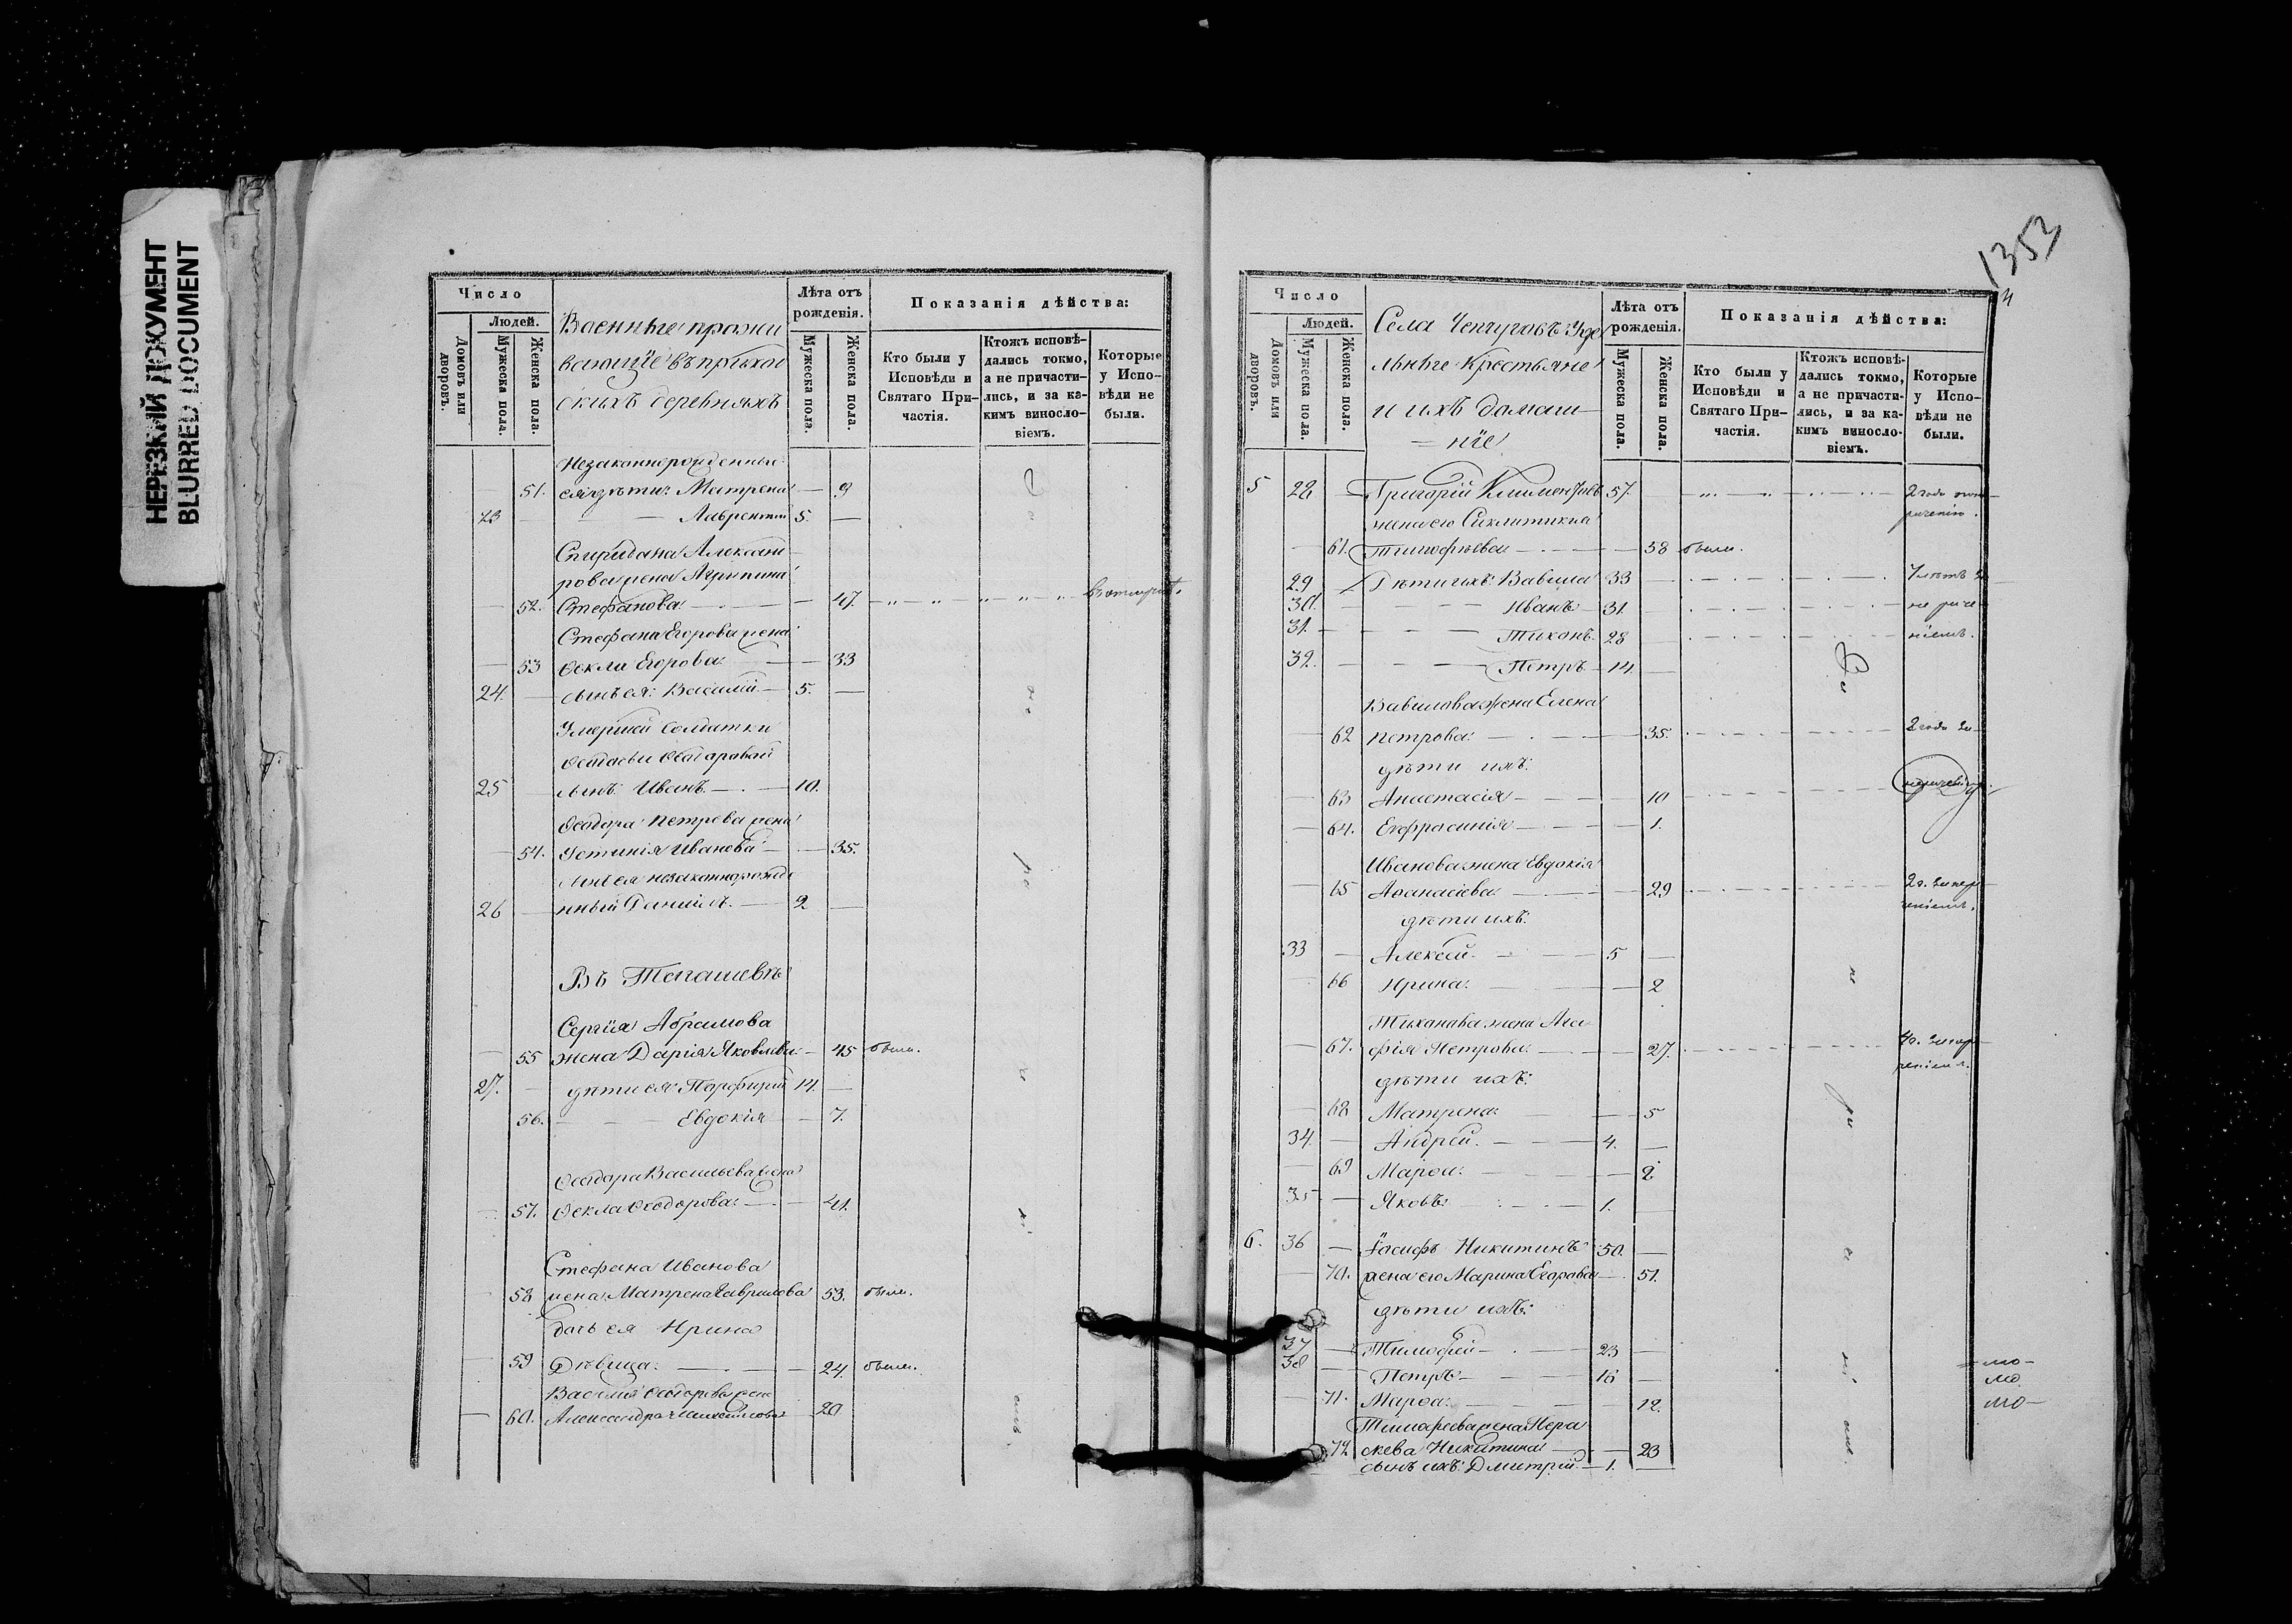 НЕРЕЗКИЙ ДОКУМЕНТ
BLURRED DOCUMENT
Число
Людей.
Домовъ или дворовъ.
Мужеска пола.
Женска пола.
Военные прожи
вающіе въ приход
скихъ деревняхъ
Лѣта отъ рожденія.
Мужеска пола.
Женска пола.
Показанія дѣйства:
Кто были у Исповѣди и Святаго Причастія.
Ктожъ исповѣдались токмо, а не причастились, и за какимъ винословіемъ.
Которые у Исповѣди не были.
Незаконнорожденные
51. ея дѣти: Матрена — 9
23 — Лаврентій 5. —
Спиридона Александ
рова жена Агрипина
52. Стефанова — 47.
Стефана Егорова жена
53 Ѳекла Егорова — 33
24. — сынъ ея: Василій — 5. —
Умершей солдатки
25 — сынъ Иванъ — 10.
Ѳеодора Петрова жена
54. Устинія Иванова — 35.
сынъ ея незаконнорожде
26 — нный Даніилъ — 2 —
Въ
Сергія Абрамова
55 жена Дарія Яковлева — 45 были.
27. — дѣти ея: Порфирій 14. —
56. — Евдокія — 7.
Ѳеодора Васильева жена
57. Ѳекла Ѳеодорова — 41.
Стефана Иванова
58 жена Матрена Гаврилова 53. были.
дочь ея Ирина
59 Дѣвица: — 24. были.
Василія Ѳеодорова жена
60. Александра — 20
1353
Число
Людей.
Домовъ или дворовъ.
Мужеска пола.
Женска пола.
Села Чепчуговъ Удѣ
льные Крестьяне
и ихъ домаш—
—ніе
Лѣта отъ рожденія.
Мужеска пола.
Женска пола.
Показанія дѣйства:
Кто были у Исповѣди и Святаго Причастія.
Ктожъ исповѣдались токмо, а не причастились, и за какимъ винословіемъ.
Которые у Исповѣди не были.
5 28 — Григорій Климентіевъ 57.
жена его Сиклитикія
61. Тимофѣева — 58 были.
29 — Дѣти ихъ: Вавила 33
30. — Иванъ — 31.
31. — Тихонъ 28
32. — Петръ — 14. —
Вавилова жена Елена
62 Петрова: — 35.
дѣти ихъ:
63 Анастасія — 10
64. Евфросинія — 1.
Иванова жена Евдокія
65 Аѳанасіева — 29
дѣти ихъ:
33 — Алексѣй — 5 —
66 Ирина: — 2
Тихонова жена Ага
67. фія Петрова: — 27.
дѣти ихъ:
68 Матрена: — 5
34. — Андрей. — 4. —
69 Марѳа: — 2
35 — Яковъ: — 1. —
6. 36 — Іосифъ Никитинъ 50. —
70. жена его Марина Егорова — 51.
дѣти ихъ:
37 — Тимофей — 23 —
38 — Петръ — 16 —
71. Марѳа: — 12.
Тимофеева жена Пера
72 скева Никитина — 23
сынъ ихъ: Дмитрій — 1. —